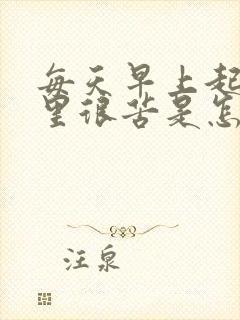 每天早上起
里很苦是怎
汪泉